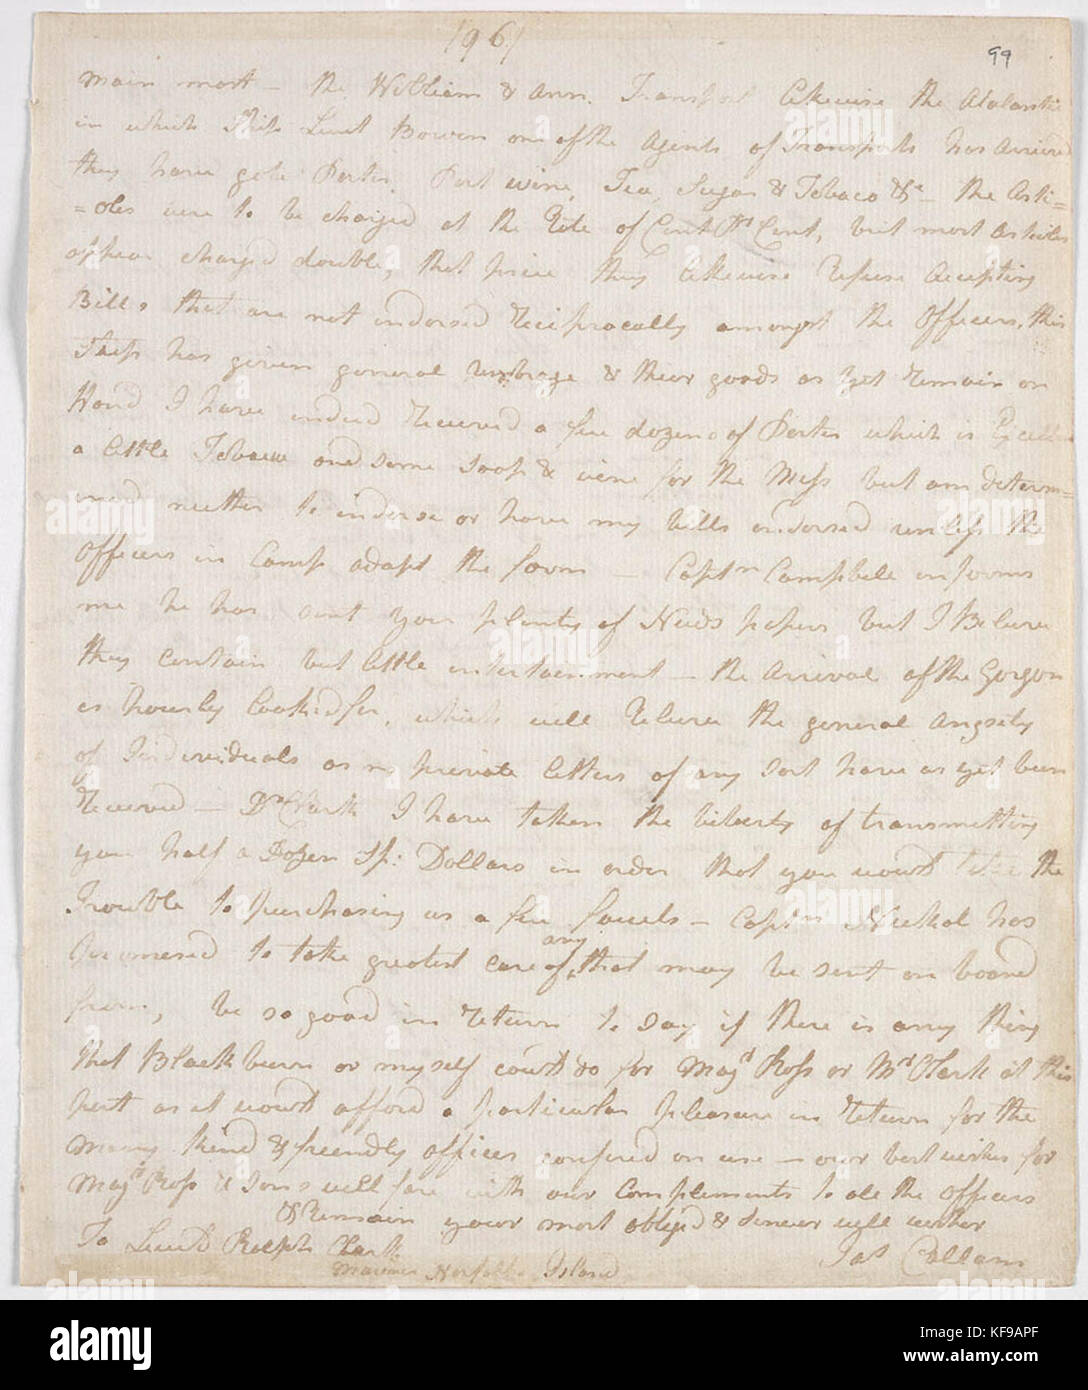 (96)
99
main mast - the William & Ann. Transport likewise the Atalantic
in which Ship Lieut Bowen one of the Agents of Transports has Arrived
they have gote Porter, Port wine, Tea, Sugar & Tobaco &c - the Arti=
=cles were to be charged at the Rate of Cent Pr Cent, but most articles
appear charged double, that price they likewise Refuse Accepting
Bills that are not indorsed Reciprocally amongst the Officers, this
Step has given general Umbrage & their goods as yet Remain on
Hand I have indeed Received a few dozens of Porter which is
a little Tobacco and some Soap & wine for the Mess but am determ=
neither to indorse or have my bills endorsed unless the
Officers in Camp adapt the form - Captn Campbele informs
me he has sent you plenty of News papers but I Beleive
they contain but little entertainment - the Arrival of the Gorgon
is hourly Looked for, which will Releive the general Angsity
of Individuals as no private letters of any sort have as yet been
Received - Dr Clark I have taken the Liberty of transmitting
you half a Dozen Sp: Dollars in order that you woud take the
Trouble to purchasing us a few fowels - Captn Nickol has
Promesed to take greatest care of any that may be sent on board
from, be so good in return to say if there is any thing
that Blackburn or myself coud do for Majr Ross or Mr Clark at this
port as it woud afford a particular pleasure in Return for the
many kind & freendly offices confered on use - our best wishes for
Majr Ross & Sons well fare with our Complements to ale the Officers
& Remain your most obliged & sincer well wisher
To Lieut Ralph Clark
Jas Callam
Marines Norfolk Island
alamy
alamy stock photo
KF9APF
www.alamy.com